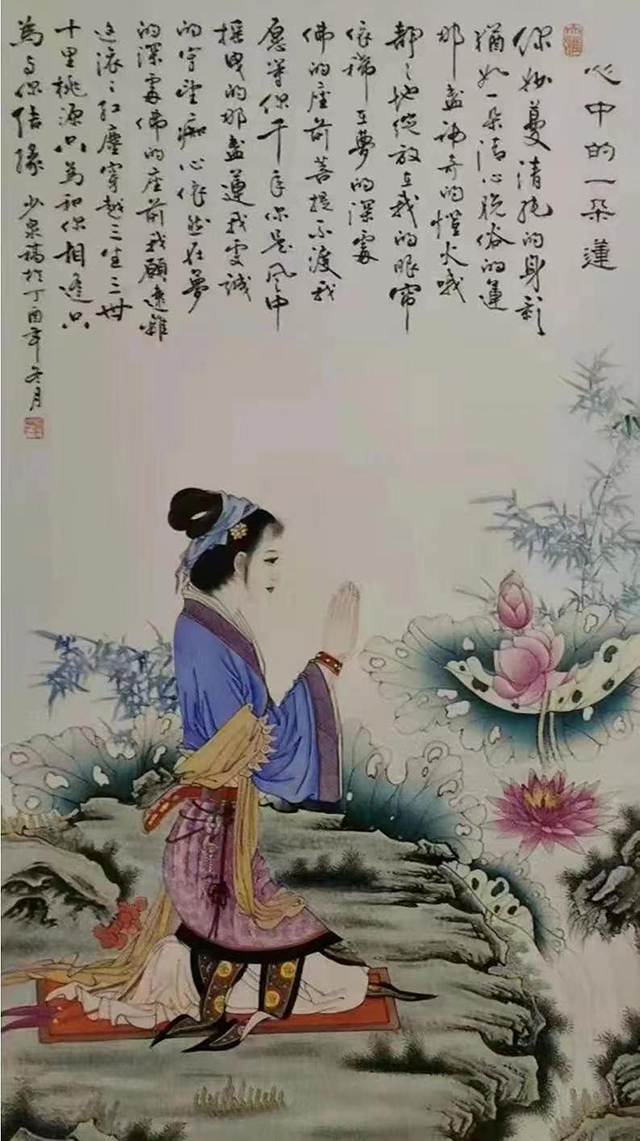 心中的一朵蓮
你妙蔓清純的身影
猶如一朵清心脫俗的蓮
那盞神奇的燈火哦
靜々地綻放在我的眼帘
依稀在夢的深處
佛的座前菩提不渡我
愿等你千年你是風中
搖曳的那盞蓮我虔誠
的守望痴心依然在夢
的深處佛的座前我願遠離
這滾々紅塵穿越三生三世
十里桃源只為和你相逢只
為与你結緣 少泉稿於丁酉年冬月